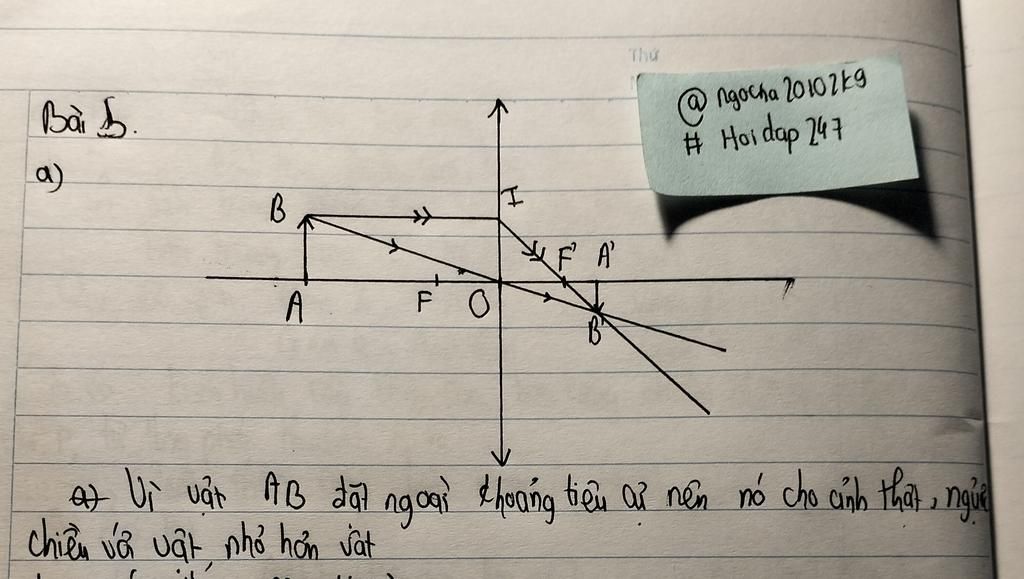 Thứ
@ ngocha20102k9
# Hoidap 247
Bài 5.
a)
B
I
F'
A'
A
F
O
B'
Vì vật AB đặt ngoài khoảng tiêu cự nên nó cho ảnh thật, ngược
chiều với vật, nhỏ hơn vật